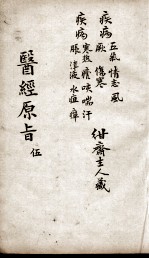 疾病 五氣 情志 風
厥 傷寒
疾病 寒熱 瘧 咳喘 汗
脹 津液 水 疽 痺
紺齋主人藏
醫經原旨 伍